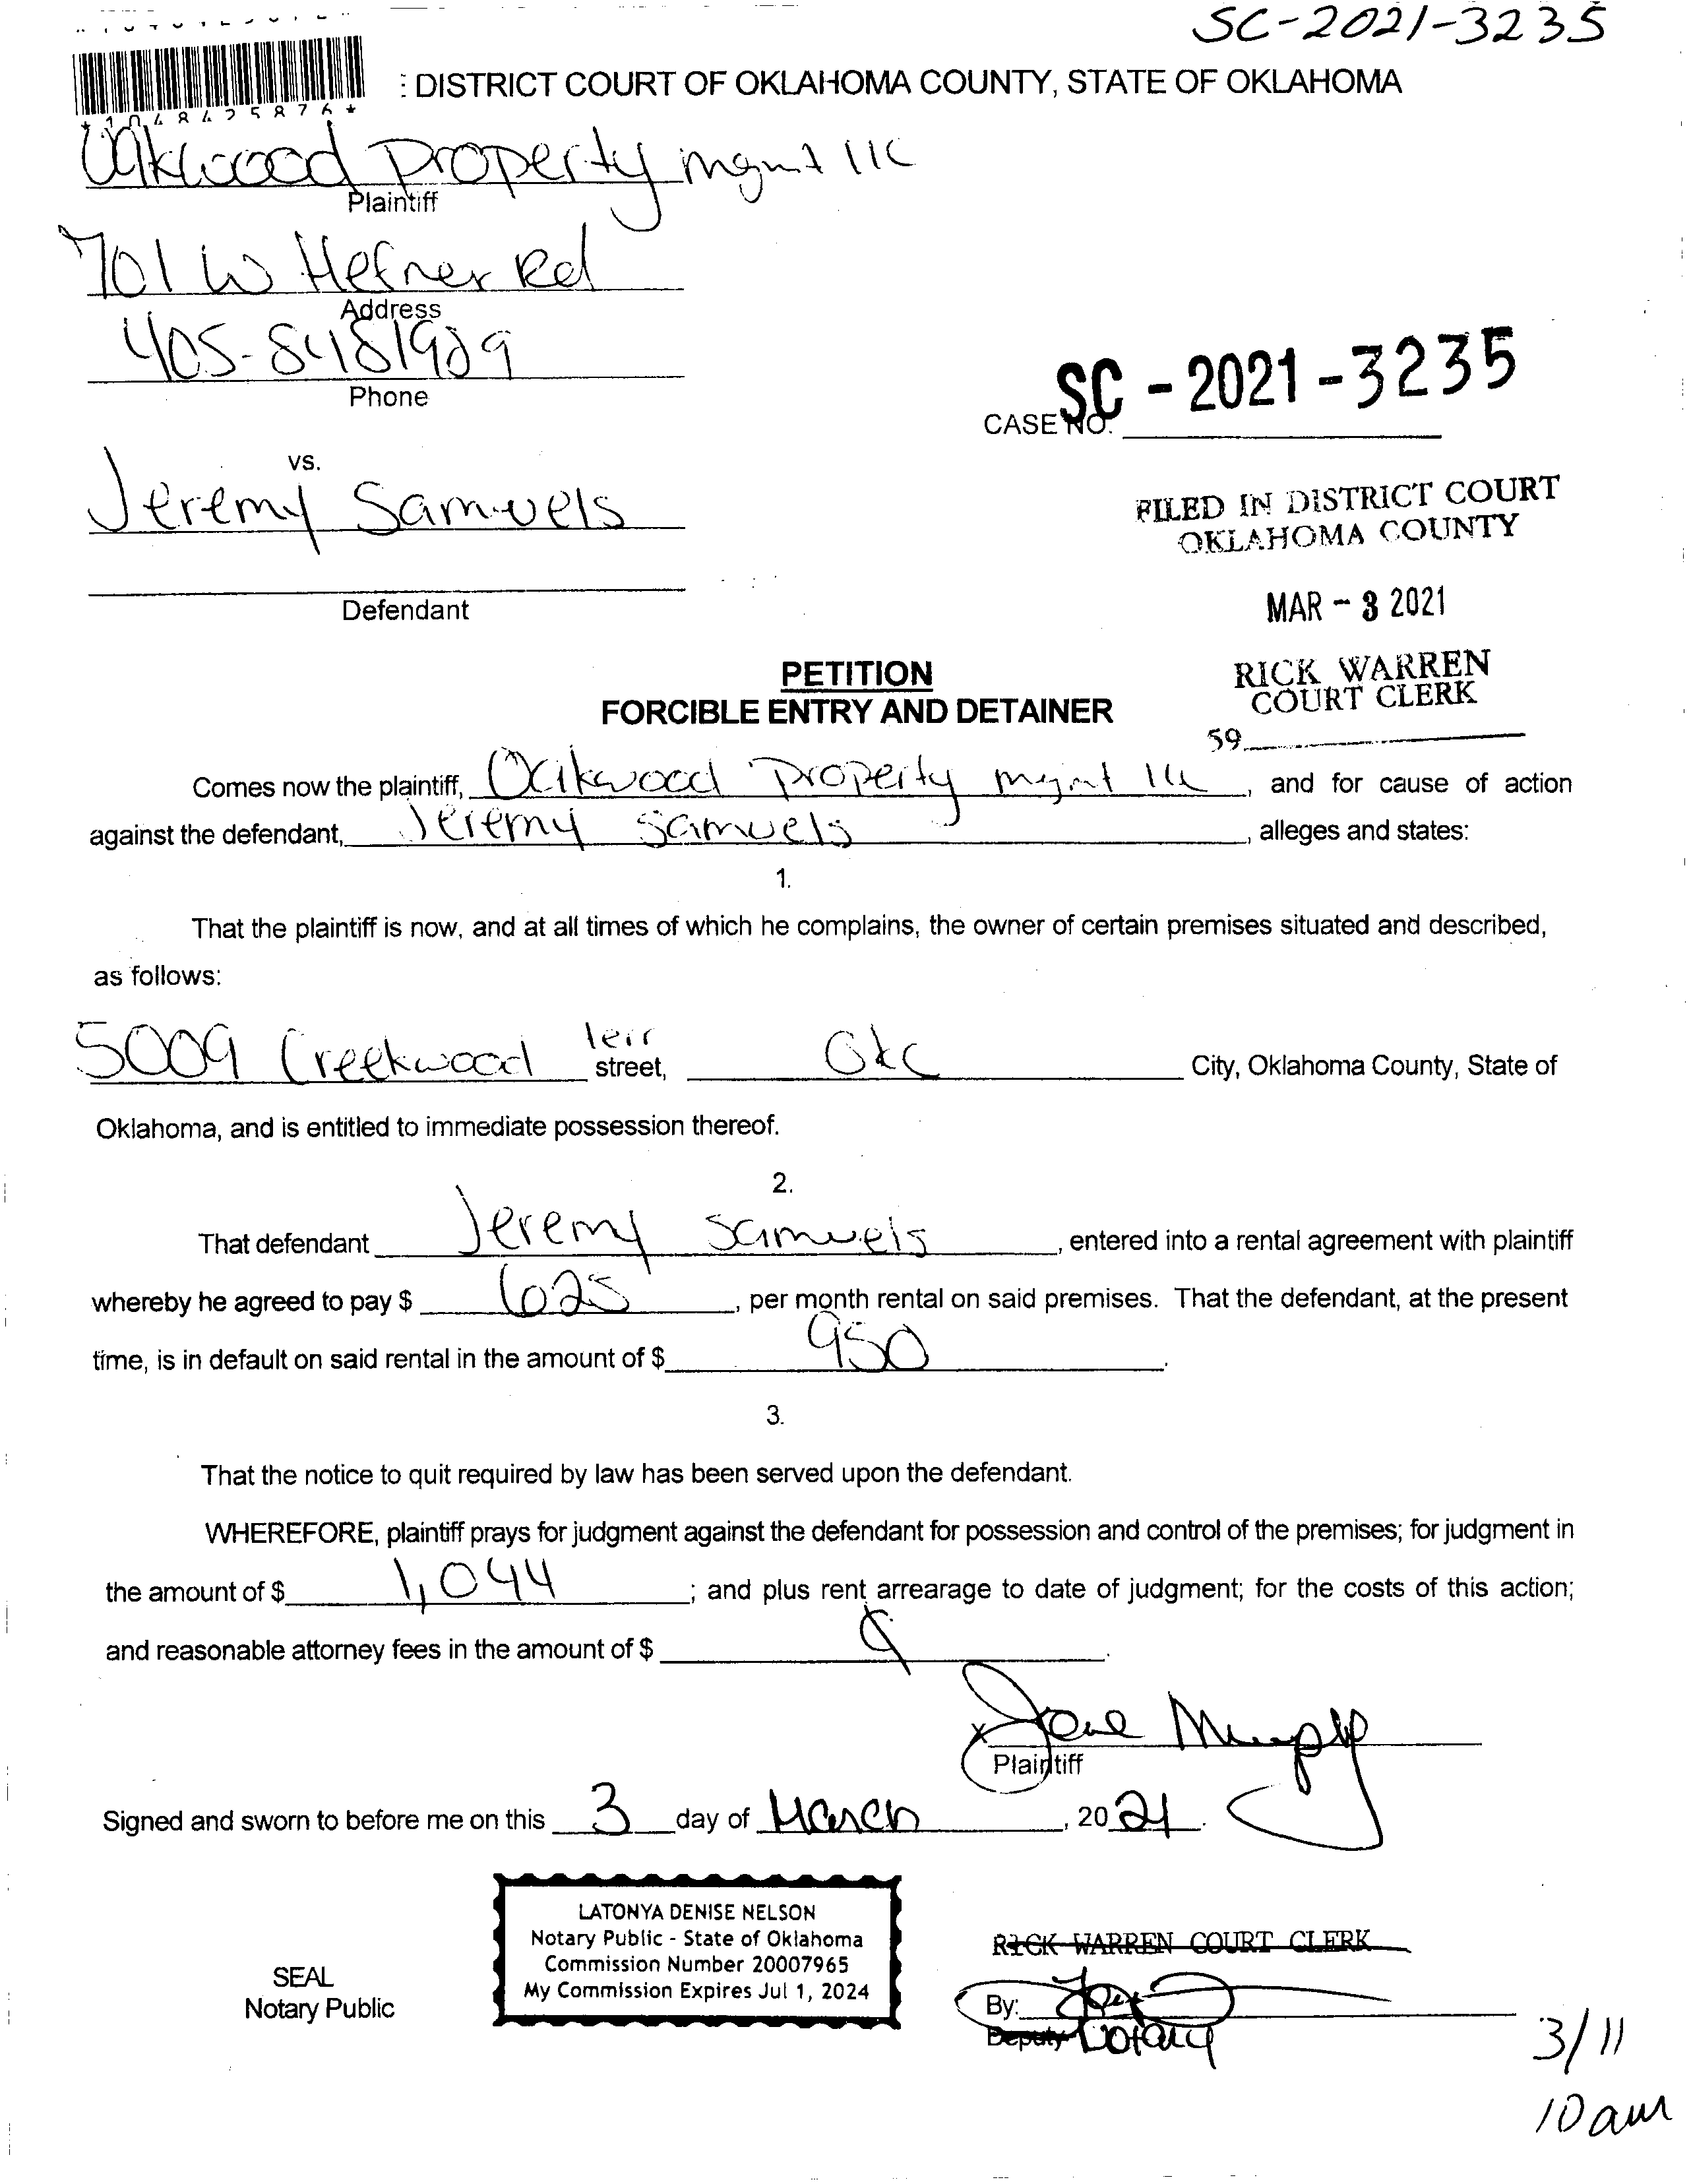 SC-2021-3235
: DISTRICT COURT OF OKLAHOMA COUNTY, STATE OF OKLAHOMA
*1048425876*
Oakwood Property mgmt llc
Plaintiff
701 W Hefner Rd
Address
405-8481989
Phone
SC-2021-3235
CASE NO.
vs.
Jeremy Samuels
FILED IN DISTRICT COURT
OKLAHOMA COUNTY
Defendant
MAR - 3 2021
PETITION
FORCIBLE ENTRY AND DETAINER
RICK WARREN
COURT CLERK
59
Comes now the plaintiff, Oakwood Property mgmt llc, and for cause of action
against the defendant, Jeremy Samuels, alleges and states:
1.
That the plaintiff is now, and at all times of which he complains, the owner of certain premises situated and described,
as follows:
5009 Creekwood terr street, OKC City, Oklahoma County, State of
Oklahoma, and is entitled to immediate possession thereof.
2.
That defendant Jeremy Samuels, entered into a rental agreement with plaintiff
whereby he agreed to pay $ 625, per month rental on said premises. That the defendant, at the present
time, is in default on said rental in the amount of $ 950.
3.
That the notice to quit required by law has been served upon the defendant.
WHEREFORE, plaintiff prays for judgment against the defendant for possession and control of the premises; for judgment in
the amount of $ 1,044; and plus rent arrearage to date of judgment; for the costs of this action;
and reasonable attorney fees in the amount of $
x Jane Murphy
Plaintiff
Signed and sworn to before me on this 3 day of March, 2021.
LATONYA DENISE NELSON
Notary Public - State of Oklahoma
Commission Number 20007965
My Commission Expires Jul 1, 2024
SEAL
Notary Public
RICK WARREN COURT CLERK
By:
Deputy Notary
3/11
10am